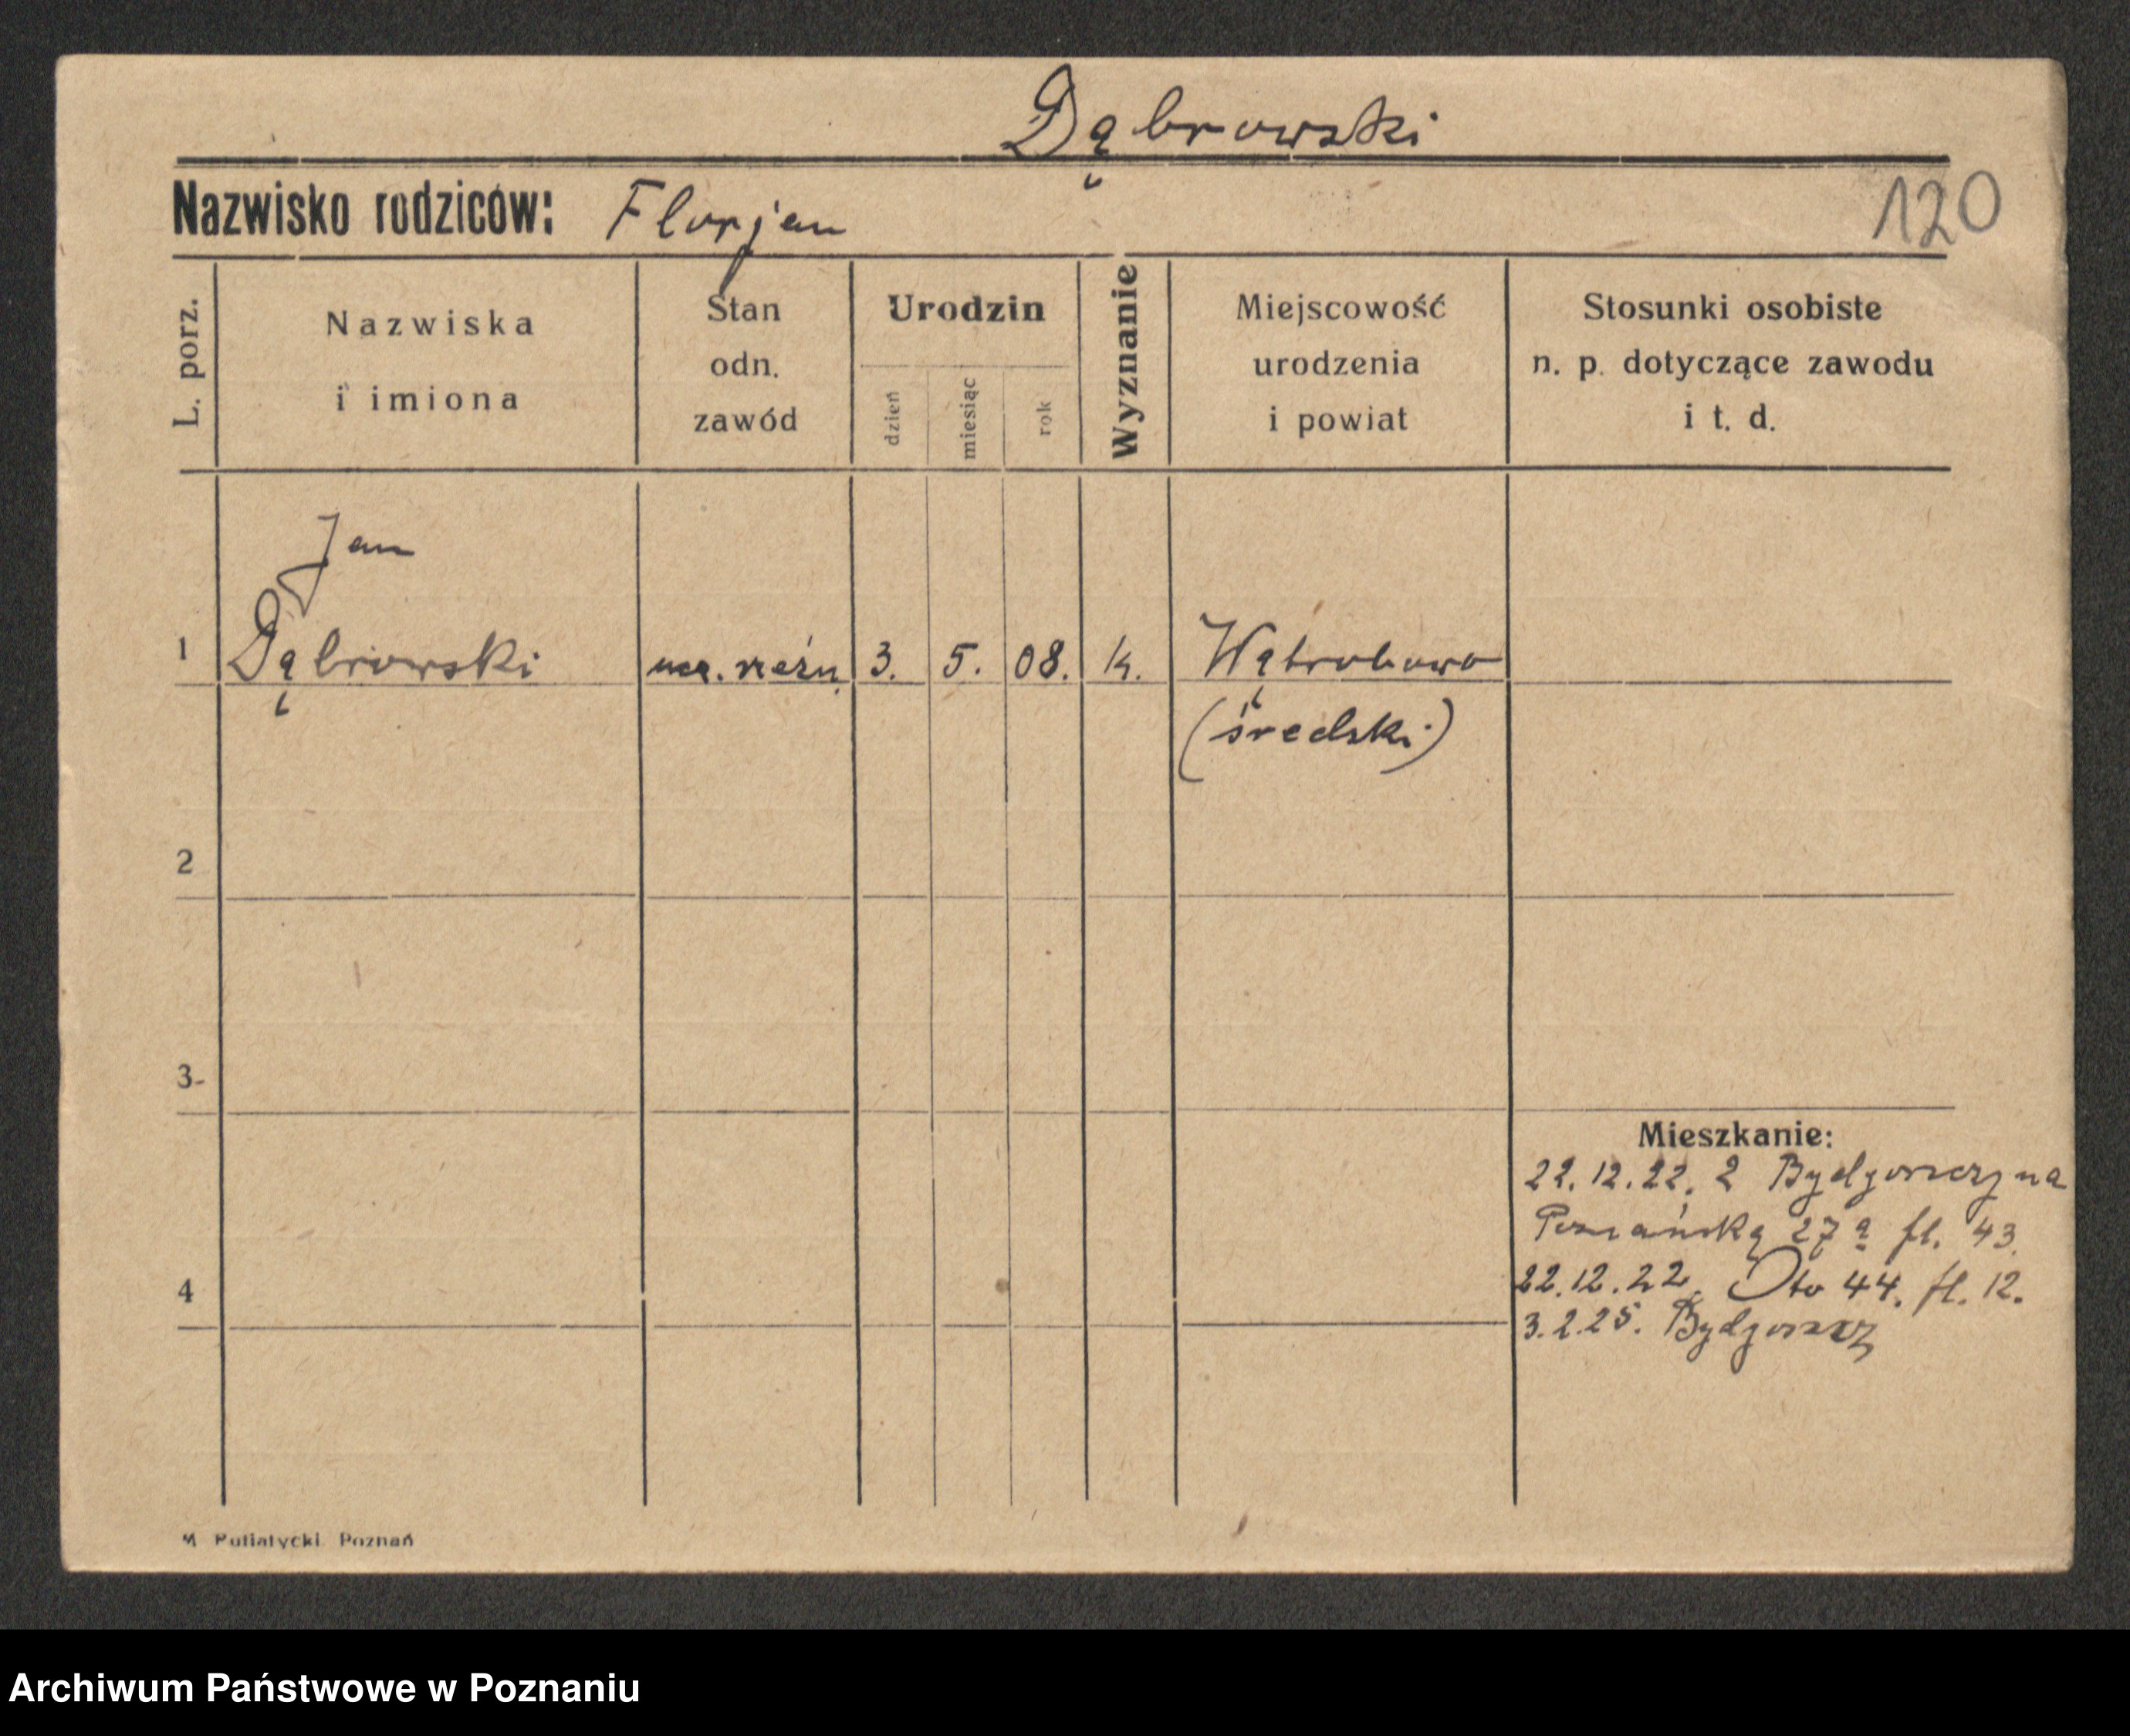 Dąbrowski
Nazwisko rodziców: Florjan
120
L. porz.
Nazwiska
i imiona
Stan
odn.
zawód
Urodzin
dzień
miesiąc
rok
Wyznanie
Miejscowość
urodzenia
i powiat
Stosunki osobiste
n. p. dotyczące zawodu
i t. d.
Jan
1 Dąbrowski ucz. rzeźn. 3. 5. 08. k. Wątrobowo
(średski)
2
3
4
Mieszkanie:
22.12.22. z Bydgoszczy na
Poznańską 27a fl. 43.
22.12.22. Oto 44. fl. 12.
3.2.25. Bydgoszcz
M Putiatycki Poznań
Archiwum Państwowe w Poznaniu